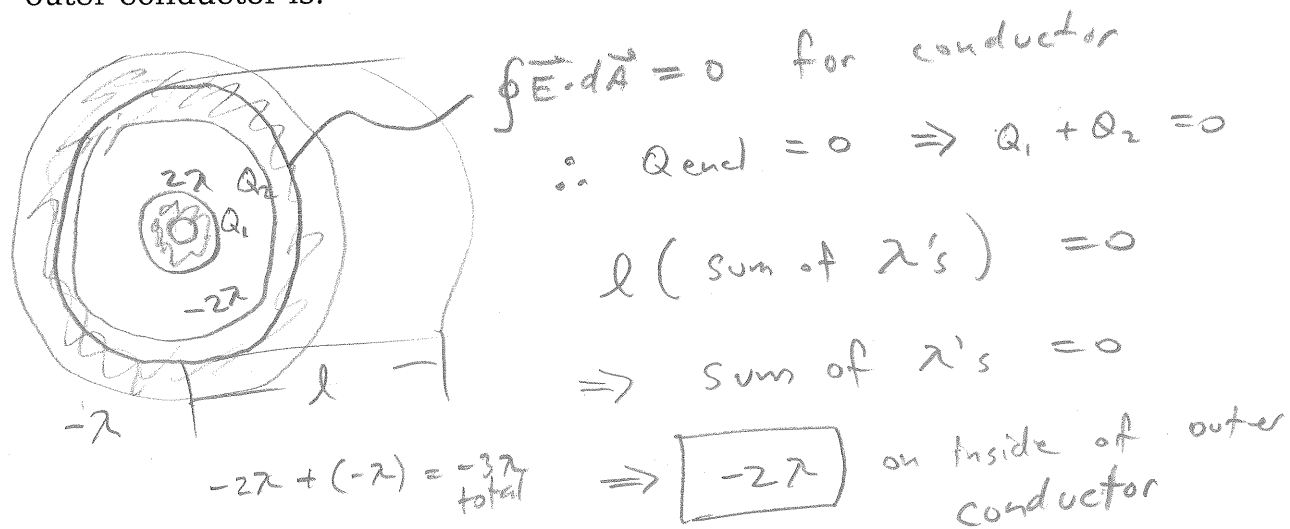 outer conductor is:
∮E⃗·dA⃗ = 0 for conductor
∴ Qencl = 0 ⇒ Q₁ + Q₂ = 0
2λ Q₂
Q₁
l ( sum of λ's ) = 0
-2λ
l
⇒ sum of λ's = 0
-λ
-2λ + (-λ) = -3λ total
⇒ -2λ on inside of outer conductor